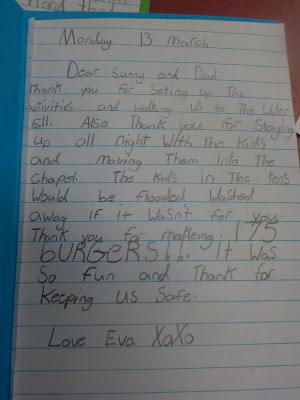 Monday 13 March
Dear Sunny and Dad
Thank you for Seting up The
activities and walking us to The Water
fall. Also Thank you for Staying
up all night With The kids
and moving Them into The
chapel. The kids in The tens
Would be flooded Washed
away if it Wasn't for you.
Thank you for makeing 175
bURGERS!!! It Was
So fun and Thank for
Keeping us Safe.
Love Eva XoXo